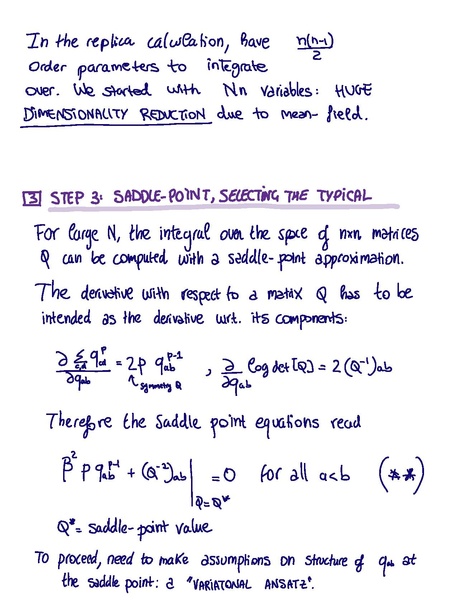 In the replica calculation, have n(n-1)/2
order parameters to integrate
over. We started with Nn variables: HUGE
DIMENSIONALITY REDUCTION due to mean-field.
3 STEP 3: SADDLE-POINT, SELECTING THE TYPICAL
For large N, the integral over the space of nxn matrices
Q can be computed with a saddle-point approximation.
The derivative with respect to a matrix Q has to be
intended as the derivative wrt. its components:
∂ Σ_{c,d} q_{cd}^p / ∂q_{ab} = 2p q_{ab}^{p-1} , ∂/∂q_{ab} log det[Q] = 2 (Q^{-1})_{ab}
↑ symmetry Q
Therefore the saddle point equations read
β² p q_{ab}^{p-1} + (Q^{-1})_{ab} |_{Q=Q*} = 0 for all a<b (**)
Q* = saddle-point value
To proceed, need to make assumptions on structure of q_{ab} at
the saddle point: a "VARIATONAL ANSATZ".